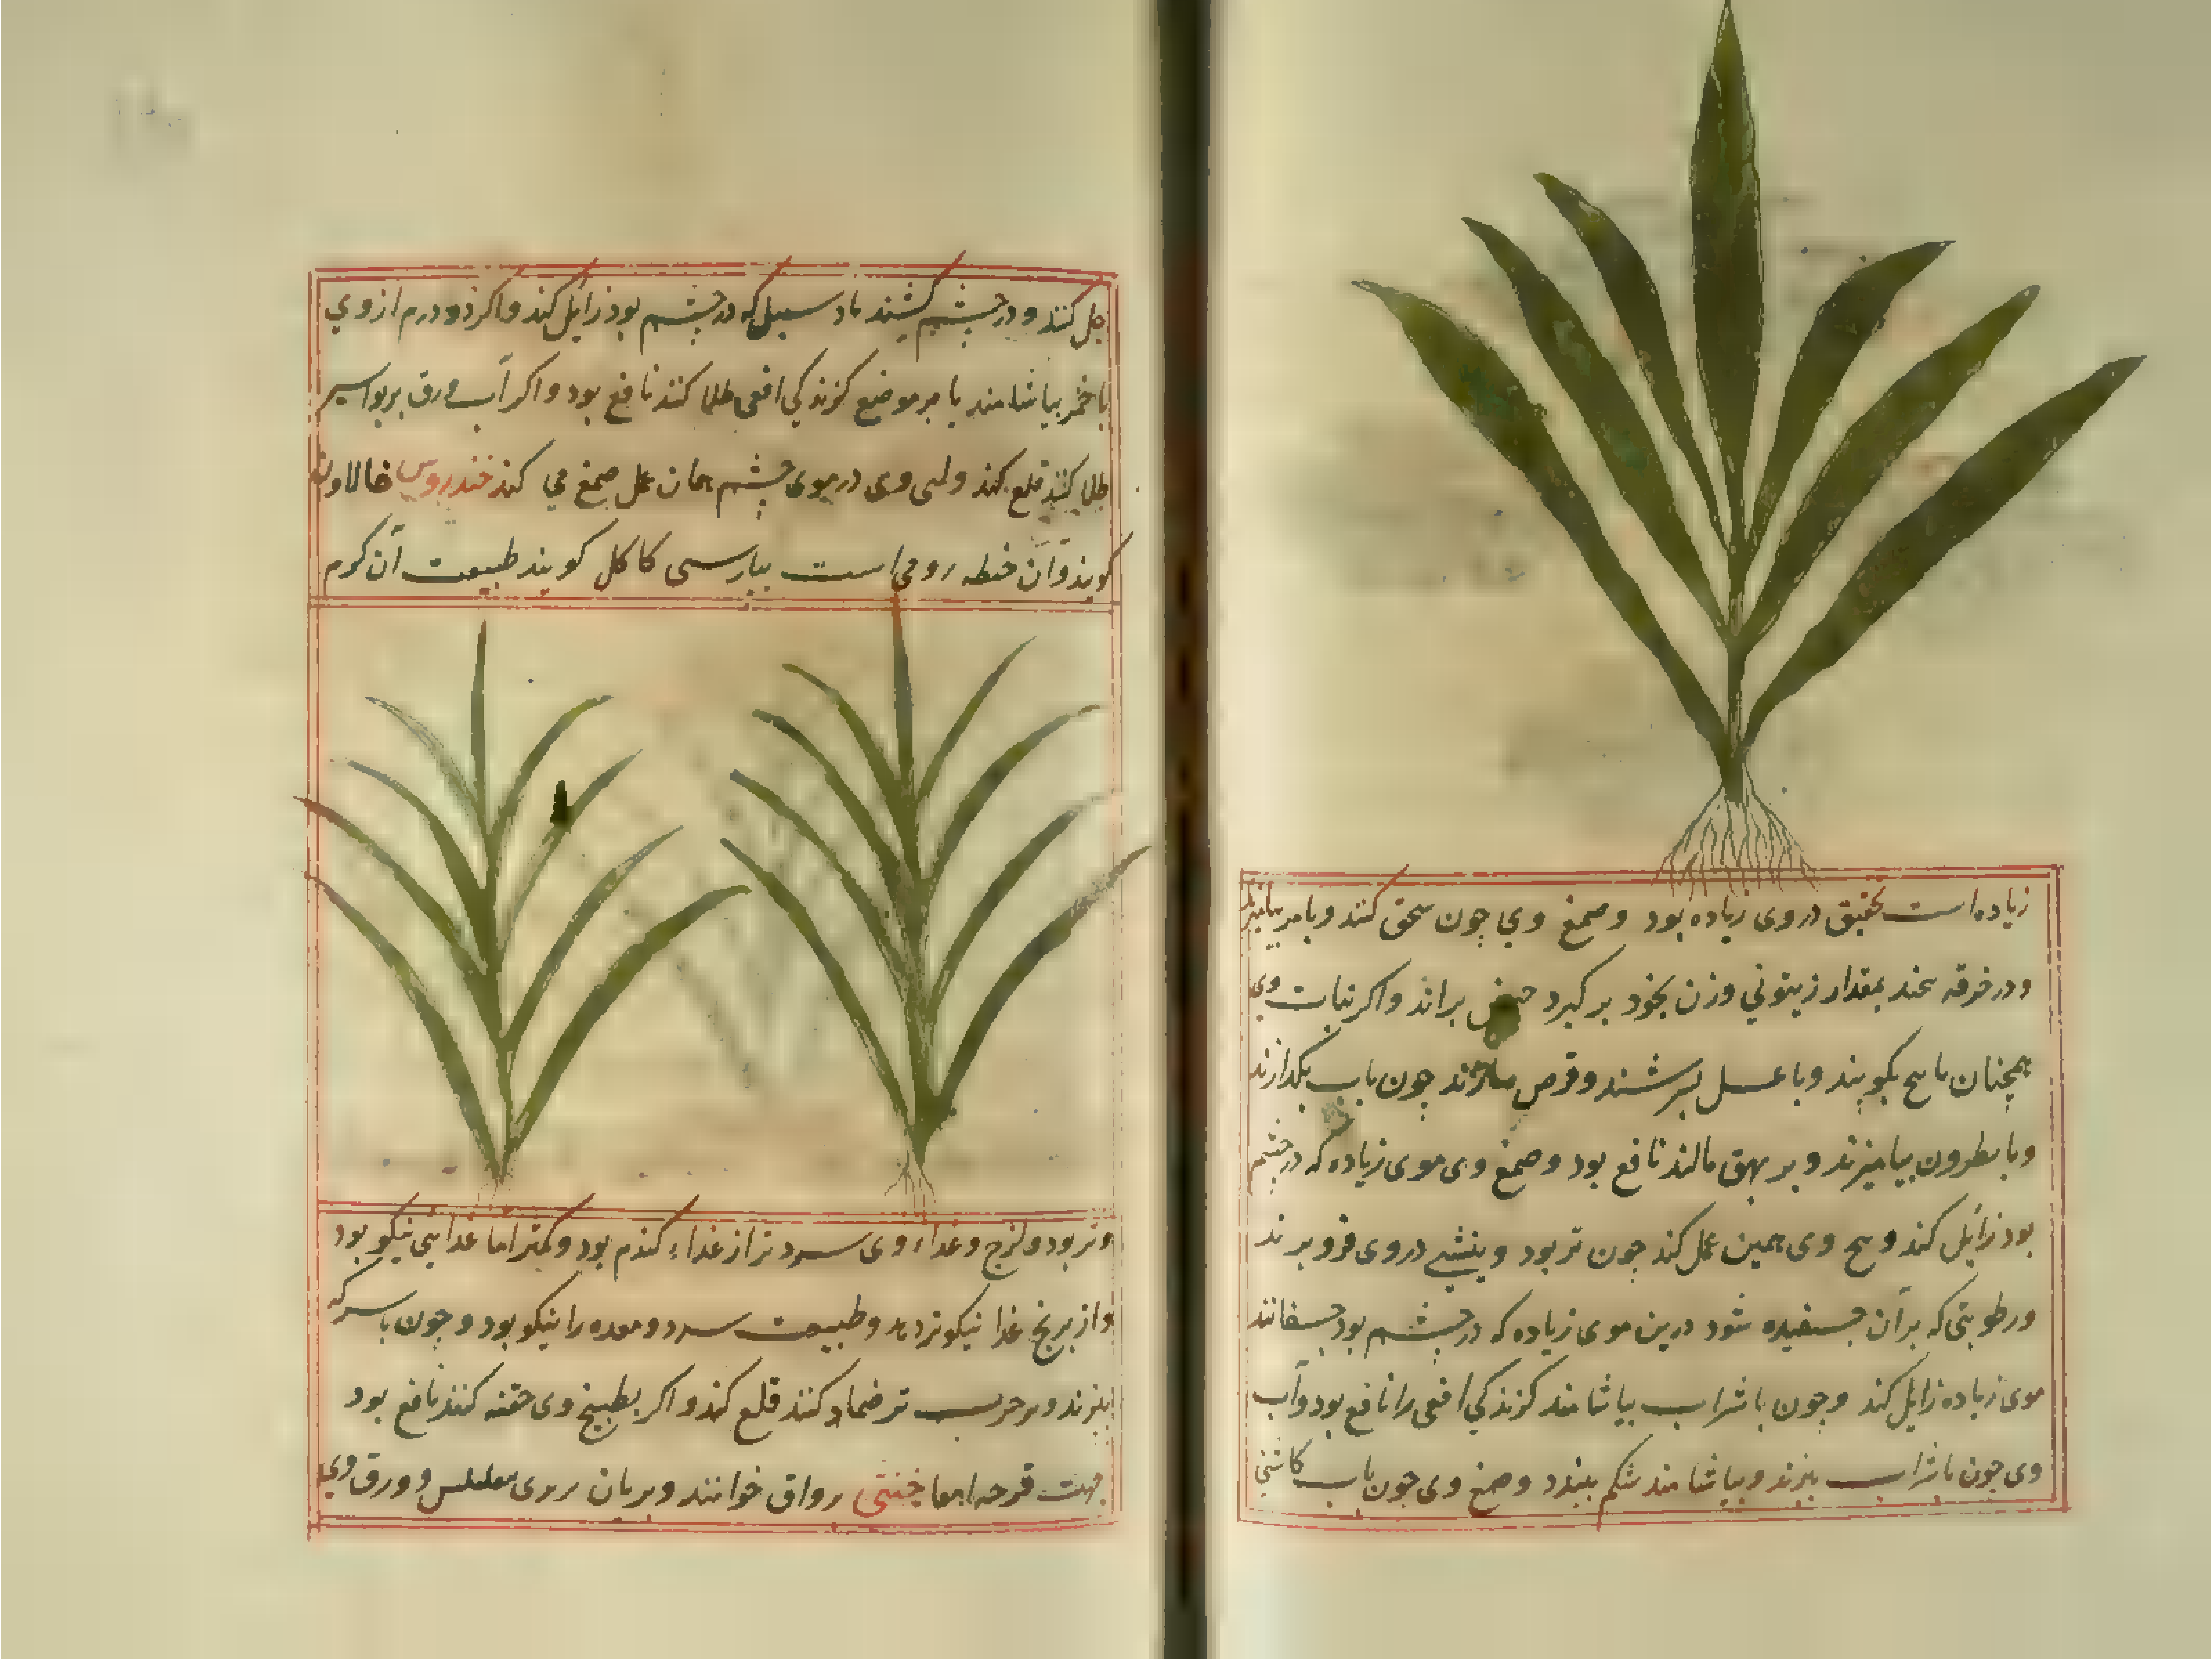 زیاده است تحقیق در وی زیاده بود و صمغ وی چون سحق کنند و با مر بیامیزند
و در خرقه کنند بمقدار زیتونی وزن بخود بر گیرد حیض براند و اکر نبات وی
همچنان با بیخ بکوبند و با عسل بسرشند و قرص سازند چون باب بکدازند
و با نطرون بیامیزند و بر بهق مالند نافع بود و صمغ وی موی زیاده که در چشم
بود زایل کند و بیخ وی همین عمل کند چون تر بود و بنشی در وی فرو برند
و رطوبتی که بر آن جسفیده شود درین موی زیاده که در چشم بود جسفانند
موی زیاده زایل کند و چون با شراب بیاشامند کزندکی افعی را نافع بود و آب
وی چون با شراب بپزند و بیاشامند شکم ببندد و صمغ وی چون باب کاسنی
حل کنند و در چشم کشند باد سبل که در چشم بود زایل کند و اکر دو درم از وی
با خمر بیاشامند یا بر موضع کزندکی افعی طلا کنند نافع بود و اکر آب ورق بر بواسیر
طلا کنند قلع کند و لبن وی در موی چشم همان عمل صمغ می کند خندروس خالاون
کویند و آن حنطه رومی است بپارسی کاکل کویند طبیعت آن کرم
و تر بود و لزج و غذاء وی سردتر از غذاء کندم بود و کمتر اما غذایی نیکو بود
و از برنج غذا نیکوتر دهد و طبیعت سرد و معده را نیکو بود و چون با سرکه
بپزند و بر جرب تر ضماد کنند قلع کند و اکر بطبیخ وی حقنه کنند نافع بود
جهت قرحه امعا خنثی رواق خوانند و بریان و ورق وی